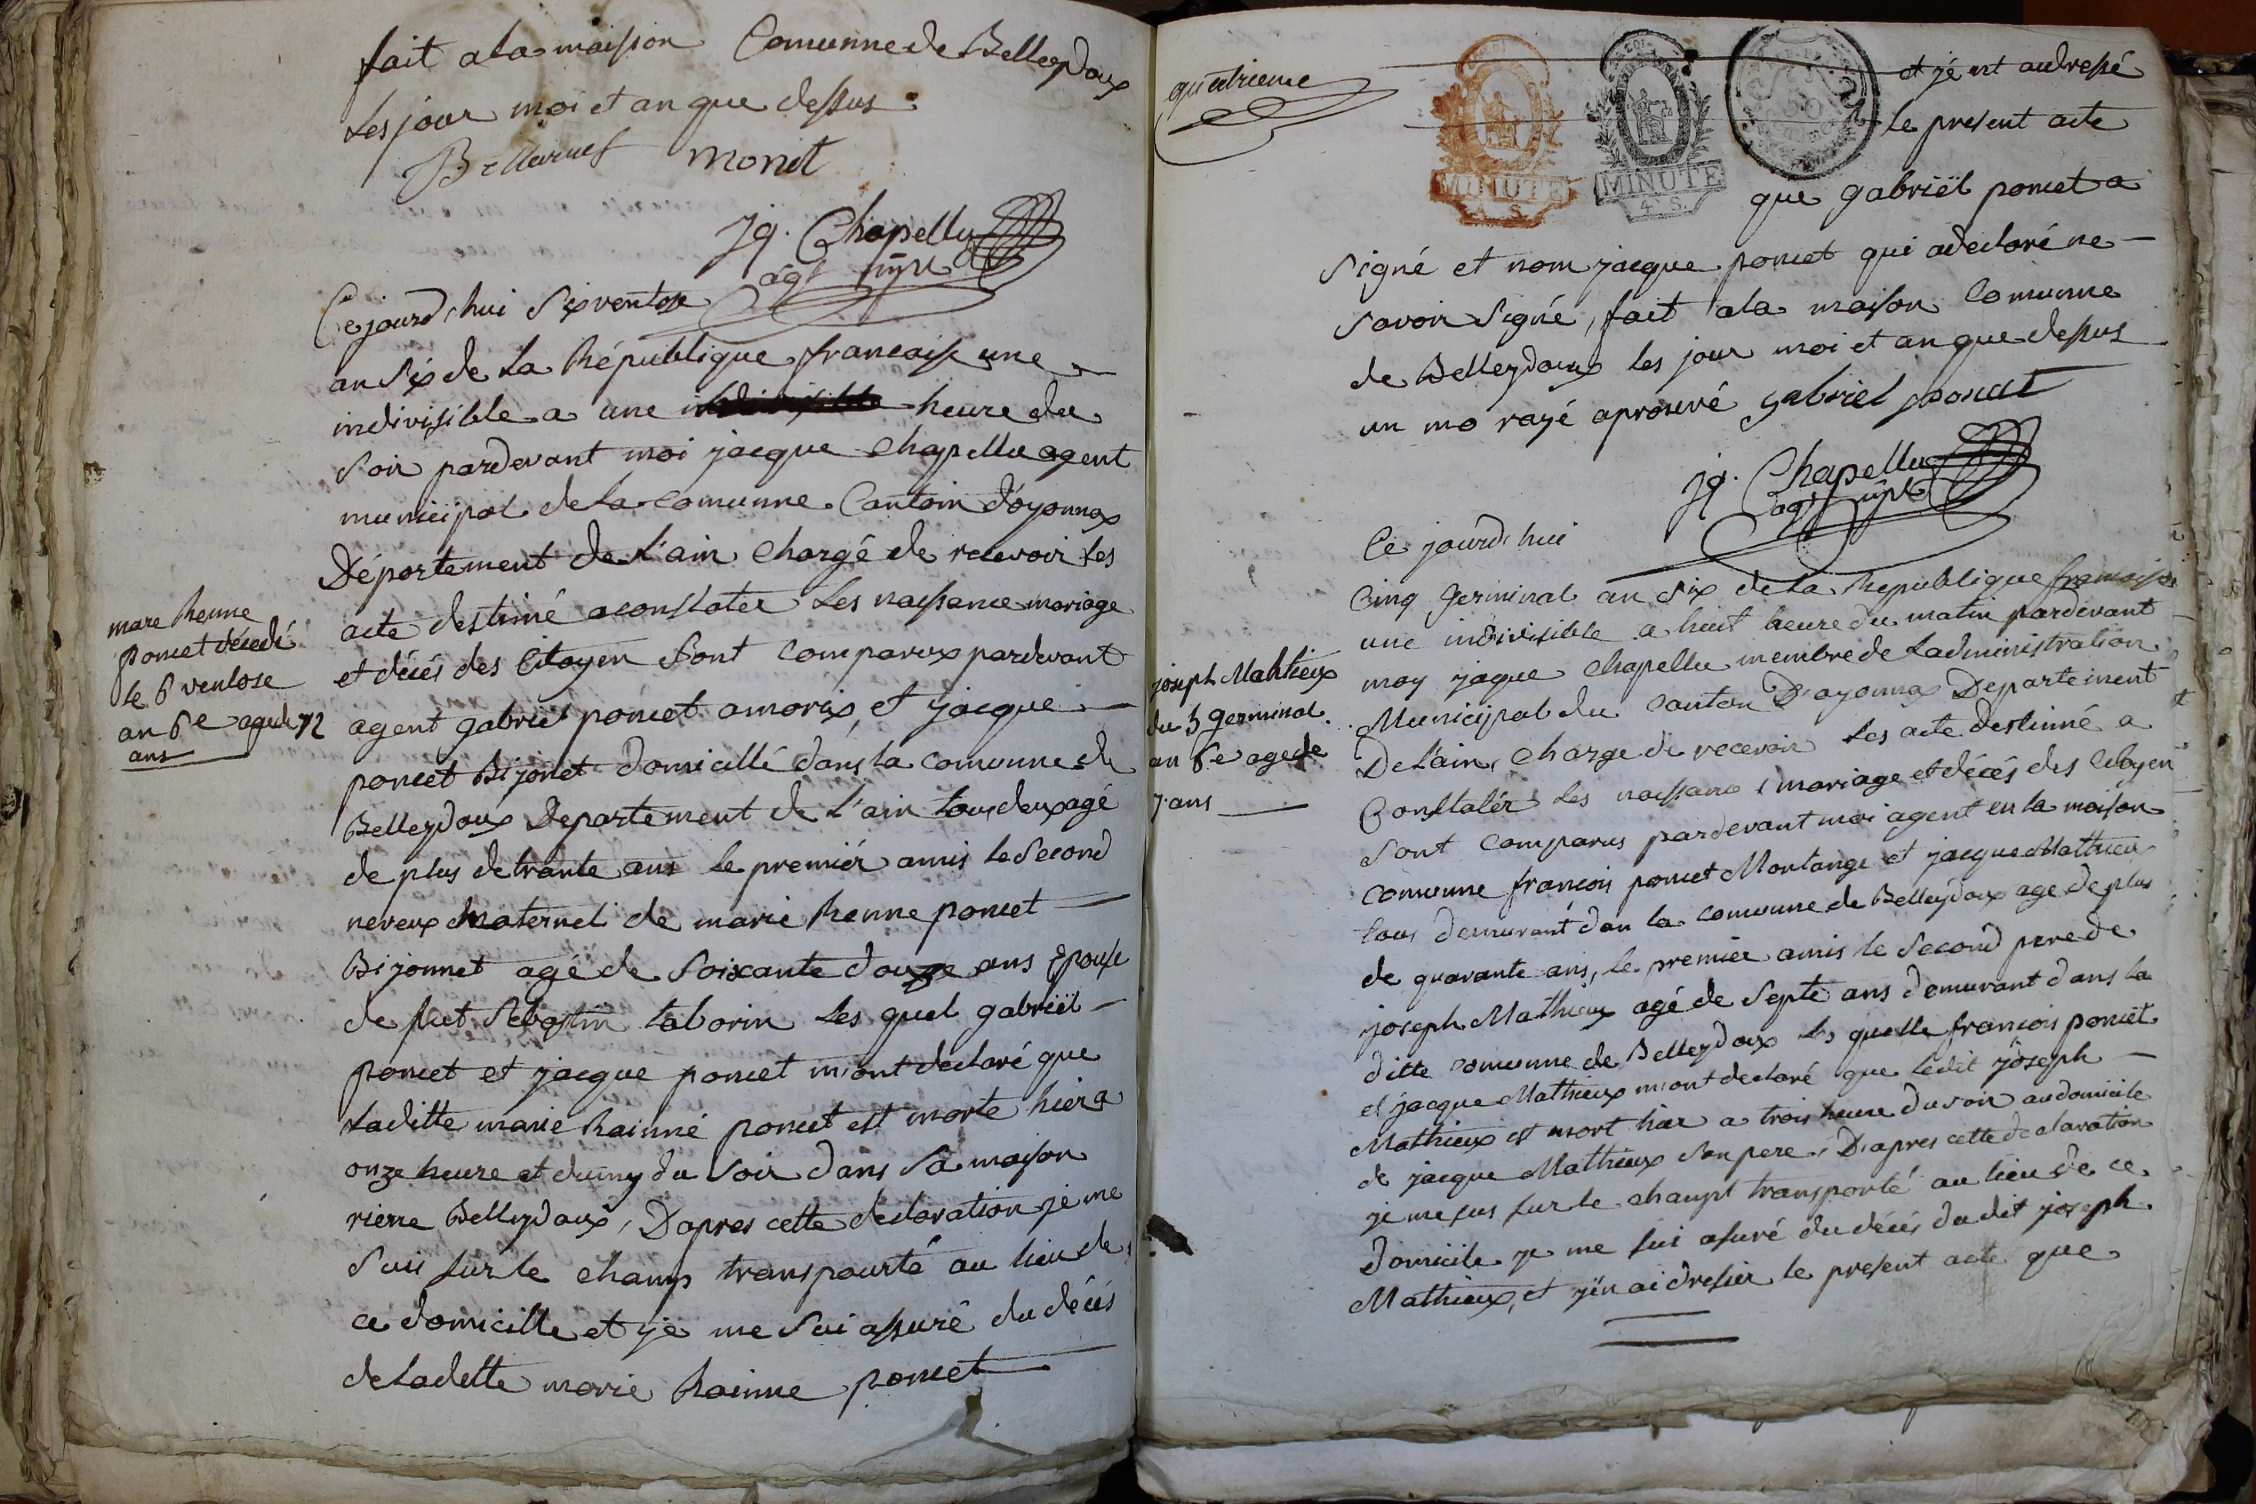 fait a la maison Comunne de Belleydoux
Les jour moi et an que dessus
monet
Jq. Chapellu
agt mpl
Ce jourd'hui Six ventose
an Six de La République francaise une
indivisible a une heure du
Soir pardevant moi jacque Chapellu agent
municipal de la Comunne Cantoin d'oyonnax
Département de L'ain Chargé de recevoir Les
acte destiné aconstater Les naissance mariage
et décés des Citoyen Sont Comparux pardevant
mare henne
poncet décédé
le 6 ventose
an 6e agede 72
ans
agent gabriel poncet amorix et jacque
poncet Bijonet domicillé dans la comunne de
Belleydoux Département de L'ain tous deux agé
de plus de trante ans le premiér amis le Second
neveux maternel de marie henne poncet
Bijonnet agé de Soixante douze ans Epouse
de fut Sebastin taborin les quel gabriël
poncet et jacque poncet m'ont declaré que
Laditte marie hainne poncet est morte hier a
onze heure et dumy du Soir dans Sa maison
rierre Belleydoux, D'apres cette declaration je me
Suis sur le champ transpourté au lieu de
ce domicille et je me Sui assuré du décés
de Laditte marie hainne poncet
quatrieme
MINUTE
4 S.
MINUTE
4 S.
et jé nt audressé
le present acte
que gabriël poncet a
Signé et nom jacque poncet qui a declaré ne
Savoir Signé, fait a la maison Comunne
de Belleydoux les jour moi et an que dessus
un mo rayé aprouvé gabriel poncet
Jq. Chapellu
agt mpl
Ce jourd'hui
Cinq Germinal an Six de la Republique francaise
une indivisible a huit heure du matin pardevant
moy jaque Chapellu membre de Ladministration
Municipal du Canton D'ayonnax Departeinent
De L'ain, Chargé de recevoir Les acte destinné a
joseph Mahtieux
du 5 germinal
an 6e agede
7 ans
Constatér les naissans, mariage et décés des Citoyen
Sont Comparus pardevant moi agent en la maison
Comunne francois poncet Montange et jacque Mathieu
tous demurant dan la Comunne de Belleydoux age de plus
de quarante ans, le premier amis le Second pere de
joseph Mathieux agé de Septe ans demurant dans la
ditte comunne de Belleydoux les quelle francois poncet
et jacque Mathieux m'ont declaré que ledit joseph
Mathieux est mort hier a trois heure du soir au domicile
de jacque Mathieux Son pere, D'apres cette declaration
je me sus sur le champt transporté au lieu de ce
domicile je me sui asuré du décés du dit joseph
Mathieux, et j'en ai dressér le present acte que